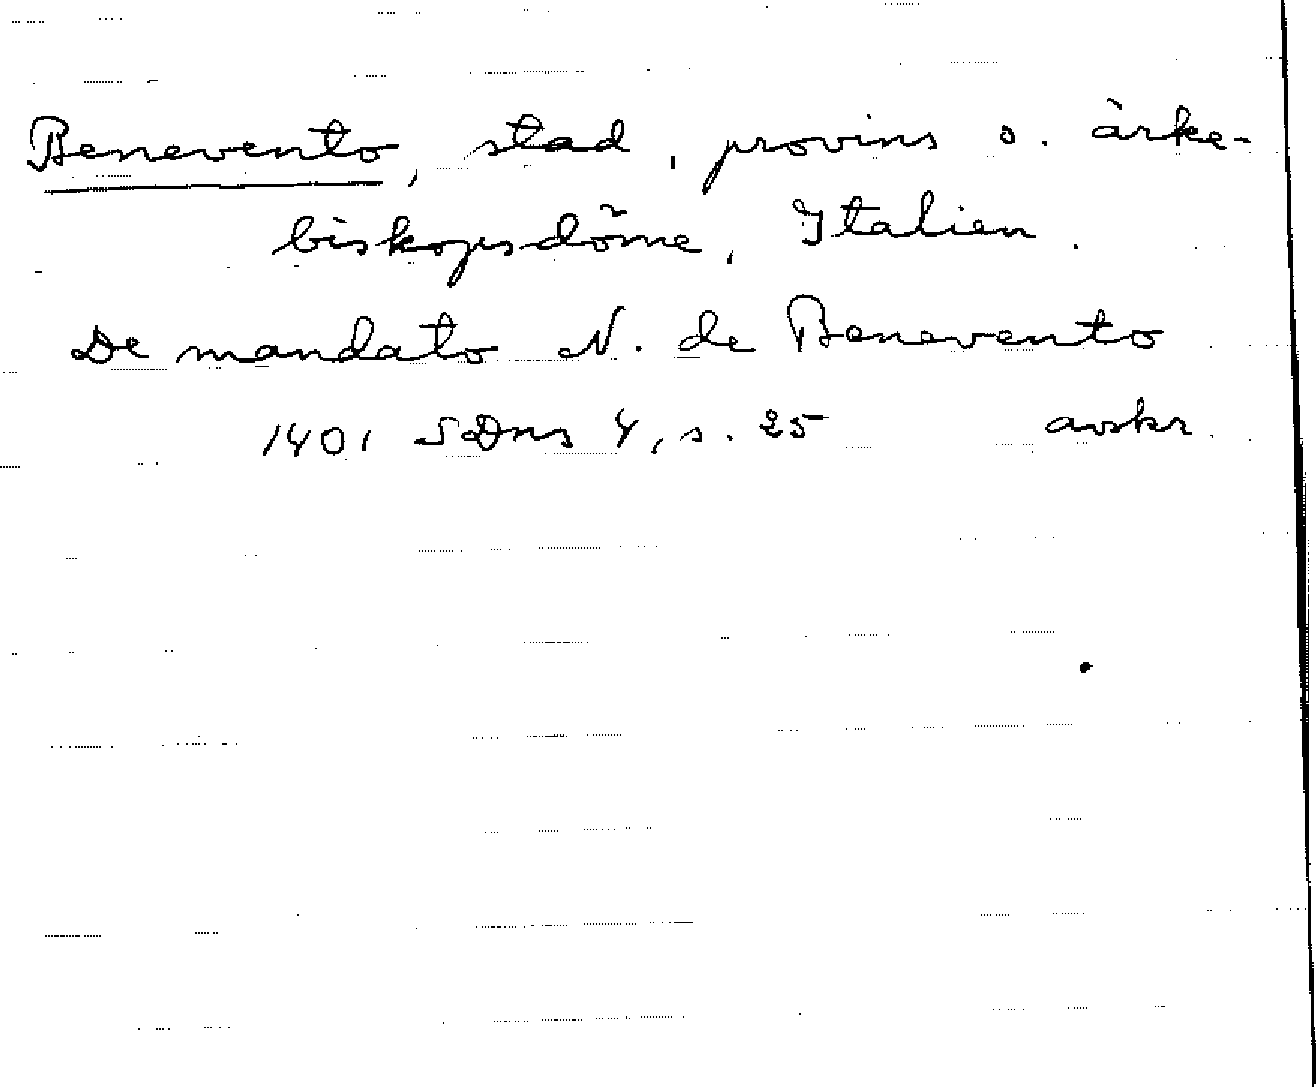 Benevento, stad, provins o. ärke-
biskopsdöme, Italien.
De mandato N. de Benevento
1401 SDns 4, s. 25 avskr.